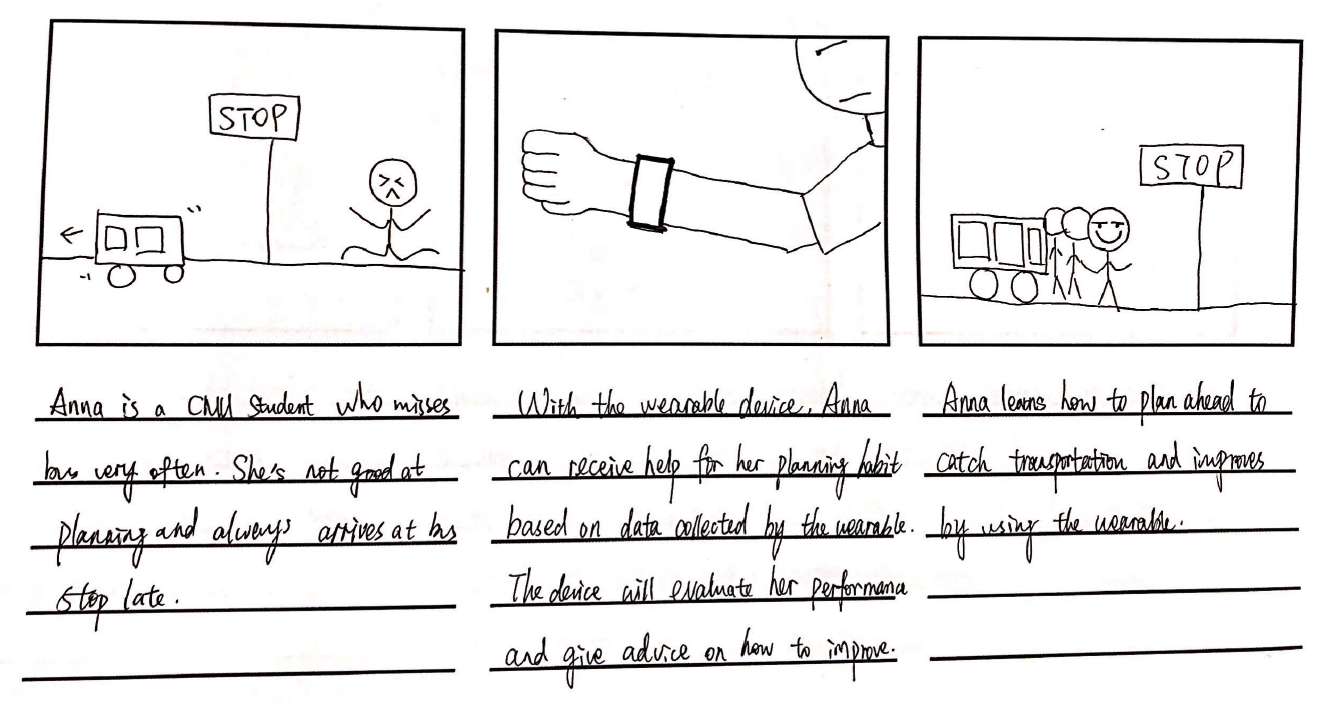 STOP
STOP
Anna is a CMU Student who misses
bus very often. She's not good at
planning and always arrives at bus
stop late.
With the wearable device, Anna
can receive help for her planning habit
based on data collected by the wearable.
The device will evaluate her performance
and give advice on how to improve.
Anna learns how to plan ahead to
catch transportation and improves
by using the wearable.